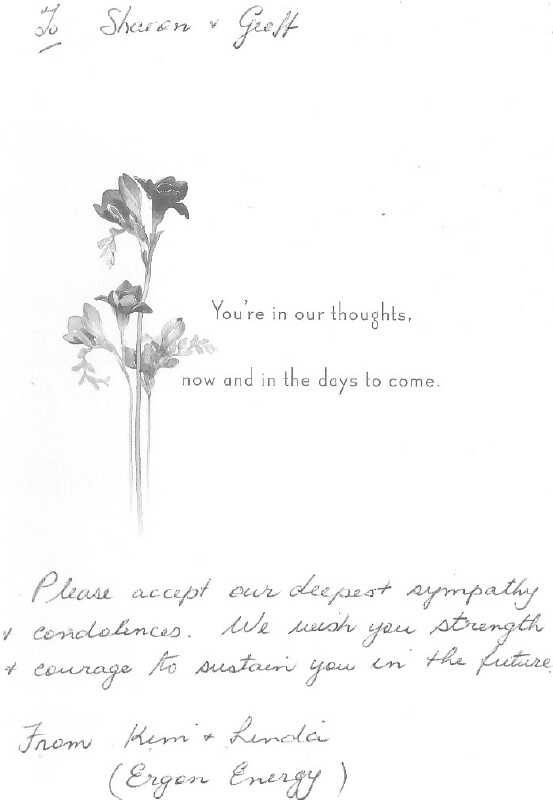 To Sharon & Geoff
You're in our thoughts,
now and in the days to come.
Please accept our deepest sympathy
& condolences. We wish you strength
& courage to sustain you in the future.
From Kim & Linda
(Ergon Energy)